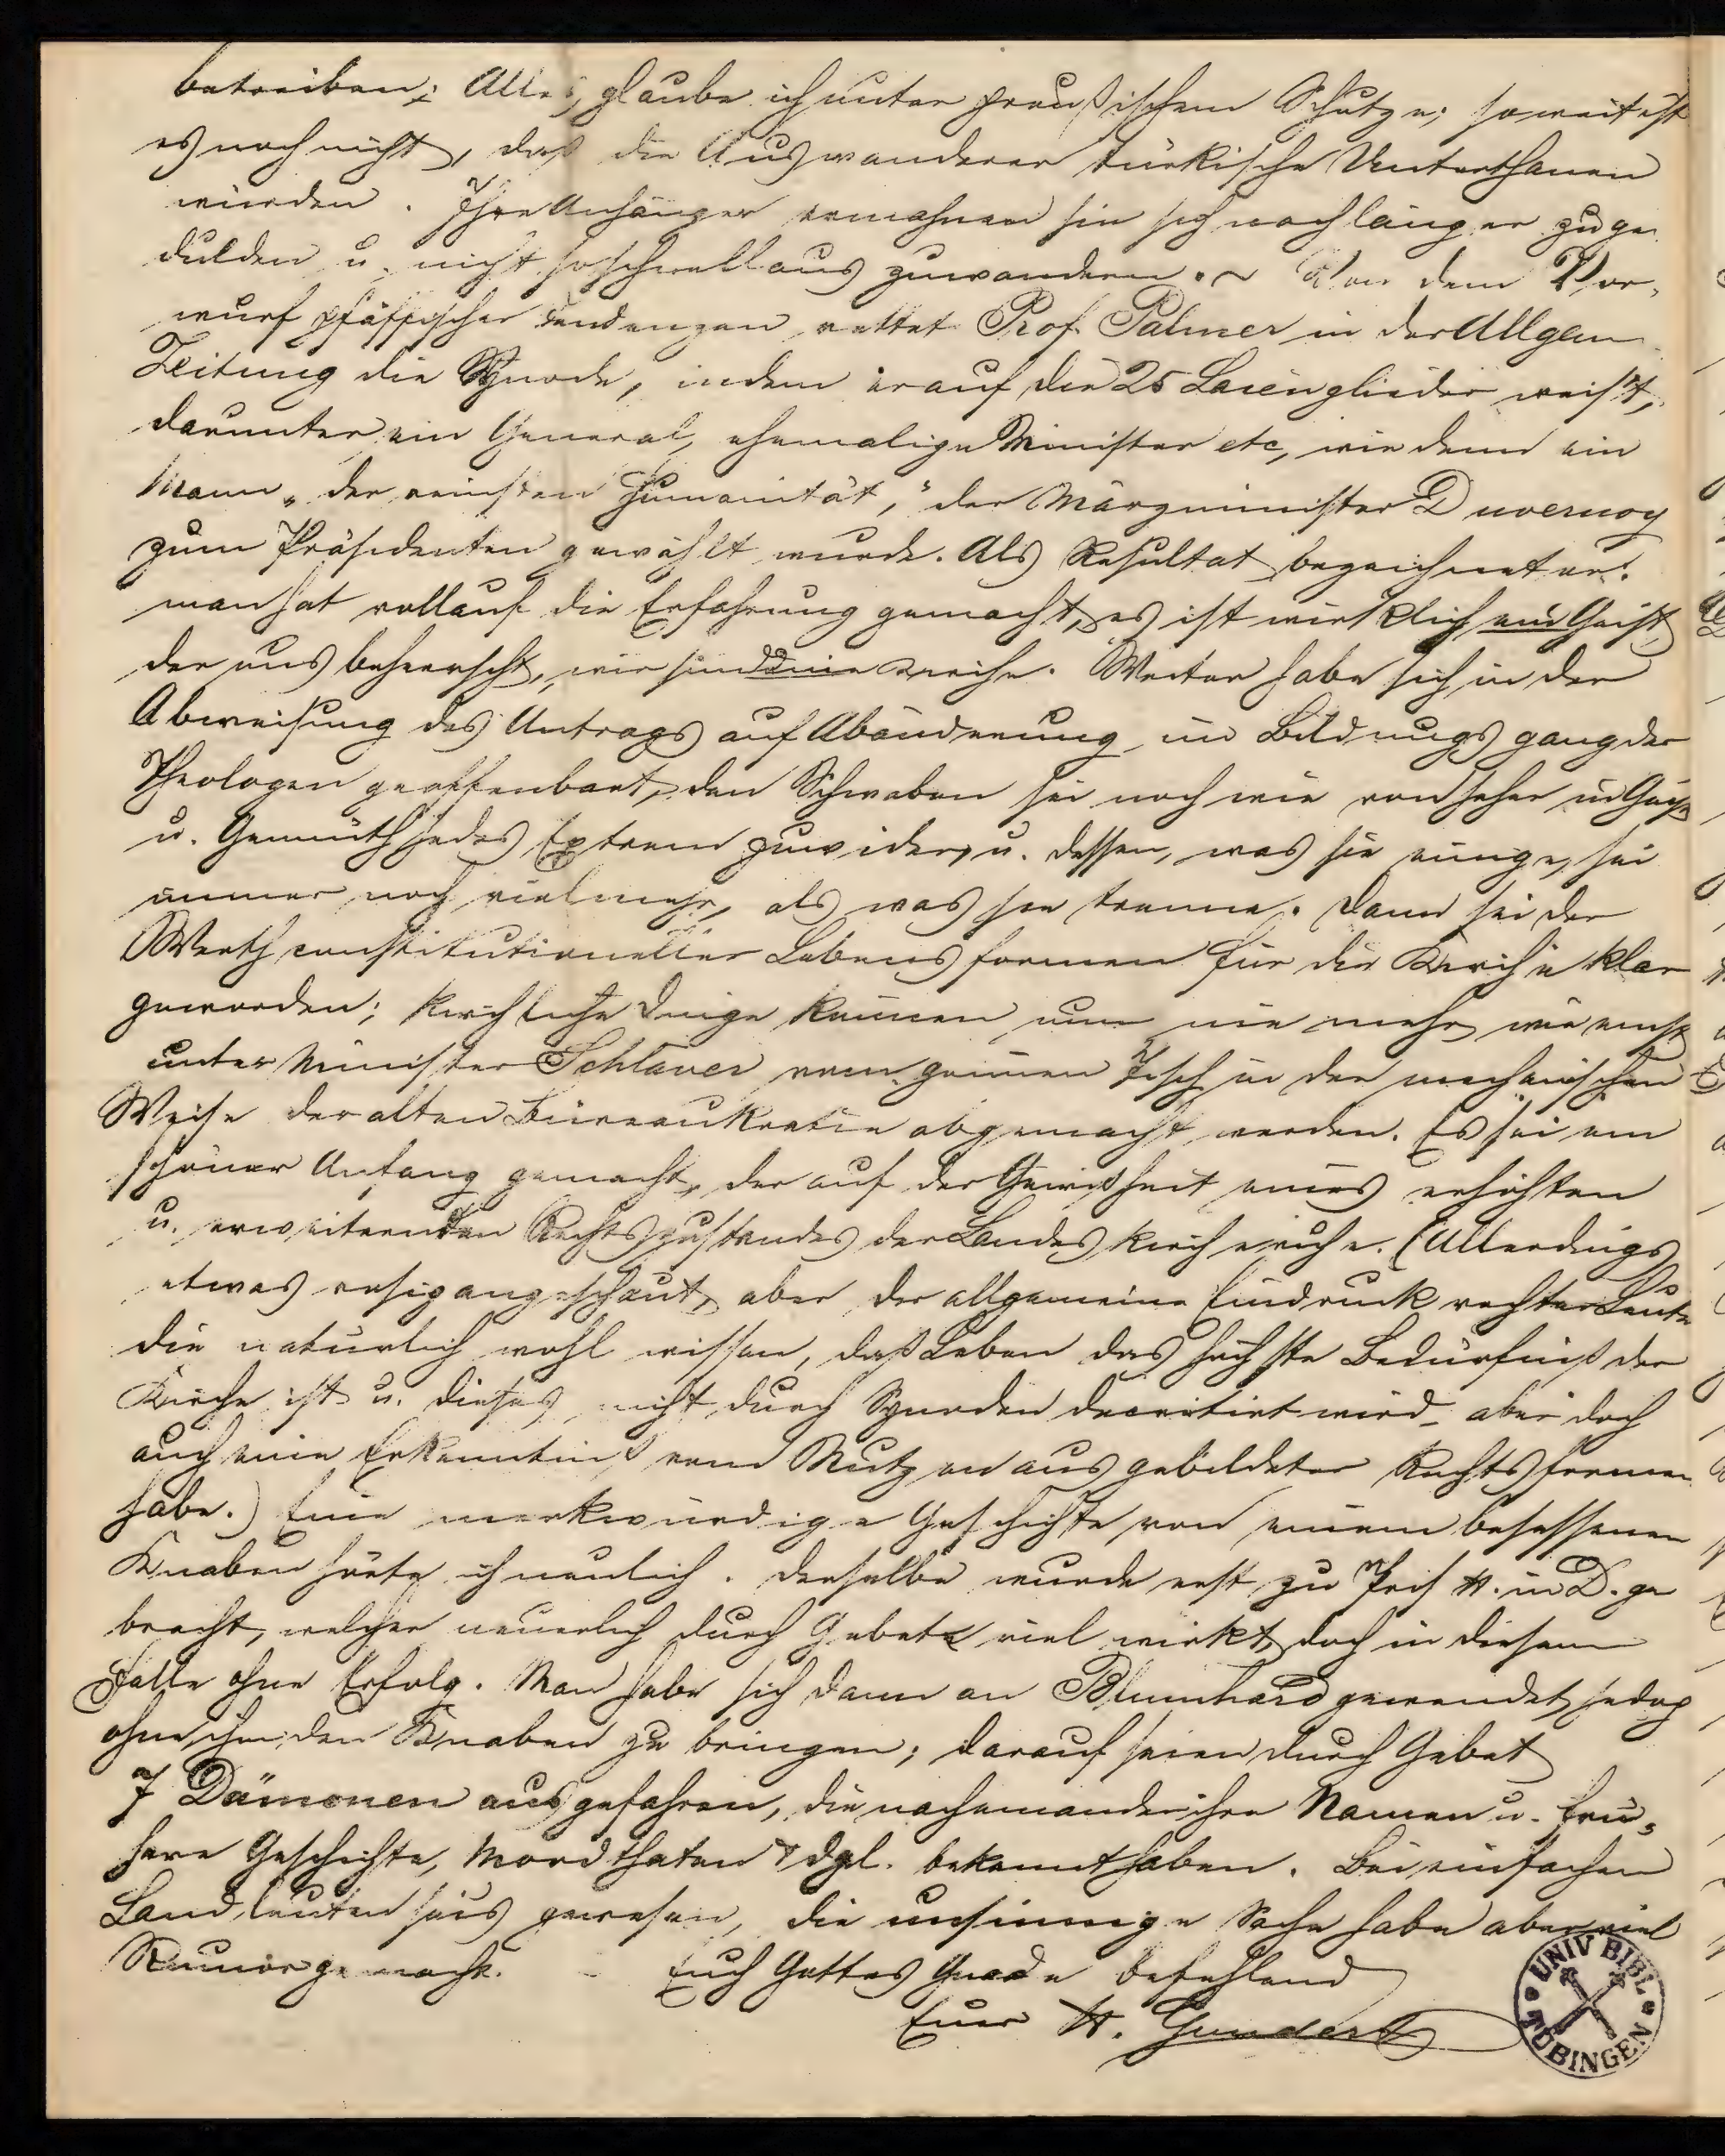 betreiben; Alles, glaube ich unter preußischem Schutze; so weit ist
es noch nicht, daß die Auswanderer türkische Unterthanen
würden. Ihre Anhänger ermahnen sie sich noch länger zu ge
dulden u. nicht so schnell auszuwandern. ~ Von dem Vor-
wurf pfäffischer Tendenzen rettet Prof. Palmer in der Allgem.
Zeitung die Synode, indem er auf die 25 Laienglieder weist,
darunter ein General, ehemalige Minister etc, wie denn ein
Mann „der reinsten Humanität," der Märzminister Duvernoy
zum Präsidenten gewählt wurde. Als Resultat bezeichnet er:
man hat vollauf die Erfahrung gemacht, es ist wirklich ein Geist
der uns beherrscht, wir sind eine Kirche. Weiter habe sich in der
Abweisung des Antrags auf Abänderung im Bildungsgang der
Theologen geoffenbart, den Schwaben sei noch wie von jeher in Geist
u. Gemüth jedes Extrem zuwider, u. dessen, was sie einige, sei
immer noch viel mehr, als was sie trenne. Dann sei der
Werth constitutioneller Lebensformen für die Kirche klar
geworden; kirchliche Dinge können nun nie mehr, wie einst
unter Minister Schlayer vom grünen Tisch in der mechanischen
Weise der alten Büreaukratie abgemacht werden. Es sei ein
schöner Anfang gemacht, der auf der Gewißheit eines erhöhten
u. erweiternden Rechtszustandes der Landeskirche ruhe. (Allerdings
etwas rosig angeschaut, aber der allgemeine Eindruck rechter Leute
die natürlich wohl wissen, daß Leben das höchste Bedürfniß der
Kirche ist u. dieses nicht durch Synoden decretirt wird, aber doch
auch eine Erkenntniß vom Nutzen ausgebildeter Rechtsformen
habe.) Eine merkwürdige Geschichte von einem besessenen
Knaben hörte ich neulich. Derselbe wurde erst zu H. in D. ge
bracht, welcher neuerlich durch Gebet viel wirkt, doch in diesem
Falle ohne Erfolg. Man habe sich dann an Blumhard gewendet, jedoch
ohne ihm den Knaben zu bringen; darauf seien durch Gebet
7 Dämonen ausgefahren, die nacheinander ihre Namen u. frü-
here Geschichte, Mordthaten & dgl. bekannt haben. Bei einfachen
Landleuten seis gewesen, die unsinnige Sache habe aber viel
Rumor gemacht. - Euch Gottes Gnade befehlend
Euer H. Gundert
UNIV BIBL TÜBINGEN